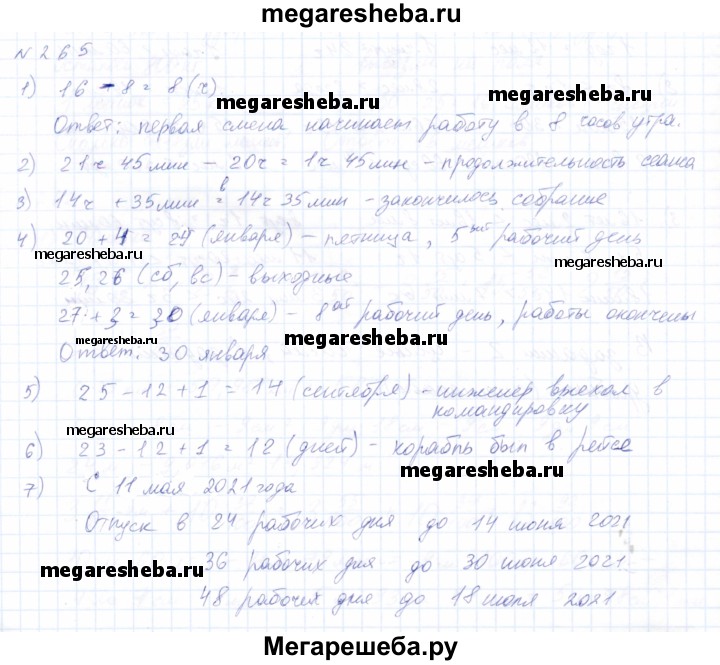 megaresheba.ru
N 265
1) 16 - 8 = 8 (ч)
megaresheba.ru
Ответ: первая смена начинает работу в 8 часов утра.
2) 21ч 45мин - 20ч = 1ч 45мин - продолжительность сеанса
3) 14ч + 35мин = в 14ч 35мин - закончилось собрание
megaresheba.ru
4) 20 + 4 = 24 (января) - пятница, 5ый рабочий день
megaresheba.ru
megaresheba.ru
25, 26 (сб, вс) - выходные
27 + 3 = 30 (января) - 8ой рабочий день, работы окончены
megaresheba.ru
Ответ: 30 января
5) 25 - 12 + 1 = 14 (сентября) - инженер выехал в
командировку
megaresheba.ru
6) 23 - 12 + 1 = 12 (дней) - корабль был в рейсе
megaresheba.ru
7) С 11 мая 2021 года
Отпуск в 24 рабочих дня до 14 июня 2021
36 рабочих дня до 30 июня 2021
megaresheba.ru
48 рабочих дня до 18 июля 2021
Мегарешеба.ру